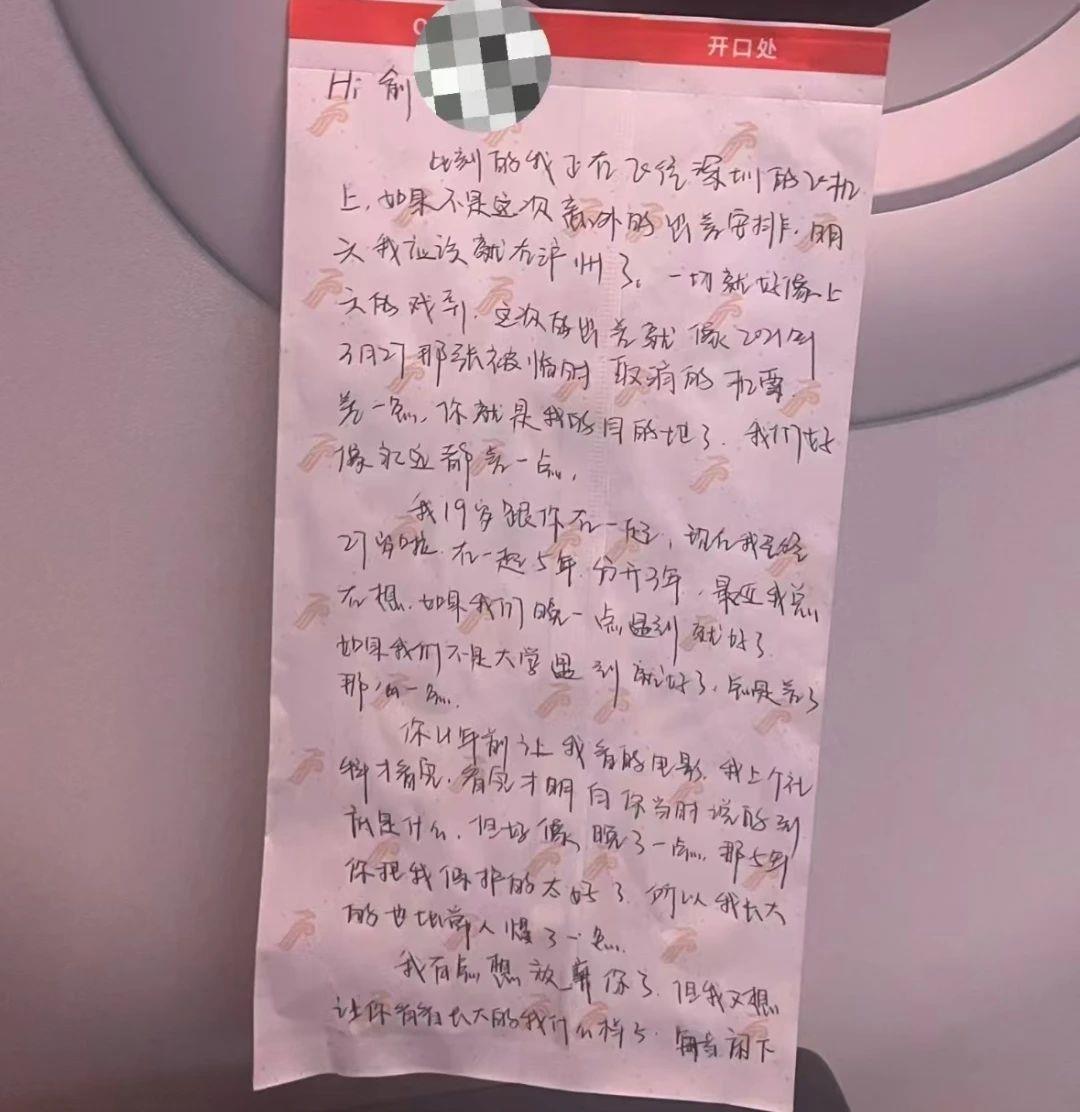 开口处
Hi 俞
此刻的我正在飞往深圳的飞机
上,如果不是这次意外的出差安排,明
天我应该就在泸州了。一切就好像上
天的戏弄,这次的出差就像2021年
3月27那张被临时取消的机票
差一点,你就是我的目的地了,我们好
像永远都差一点,
我19岁跟你在一起,现在我已经
27岁啦,在一起5年,分开3年,最近我总
在想,如果我们晚一点遇到就好了
如果我们不是大学遇到就好了,总是差了
那么一点
你 年前让我看的电影,我上个礼
拜才看完,看完才明白你当时说的到
底是什么,但好像晚了一点,那5年
你把我保护的太好了,所以我长大
的也比常人慢了一点
我有点想放弃你了,但我又想
让你看看长大的我什么样了,每当闲下